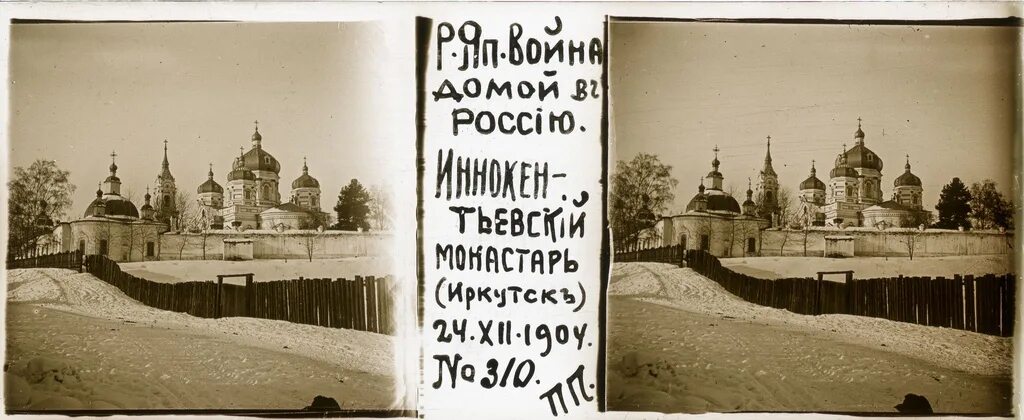 Р. Яп. Война
домой въ
Россію.
Иннокен-
тьевскій
монастарь
(Иркутскъ)
24. XII. 1904.
№ 310.
ПП.